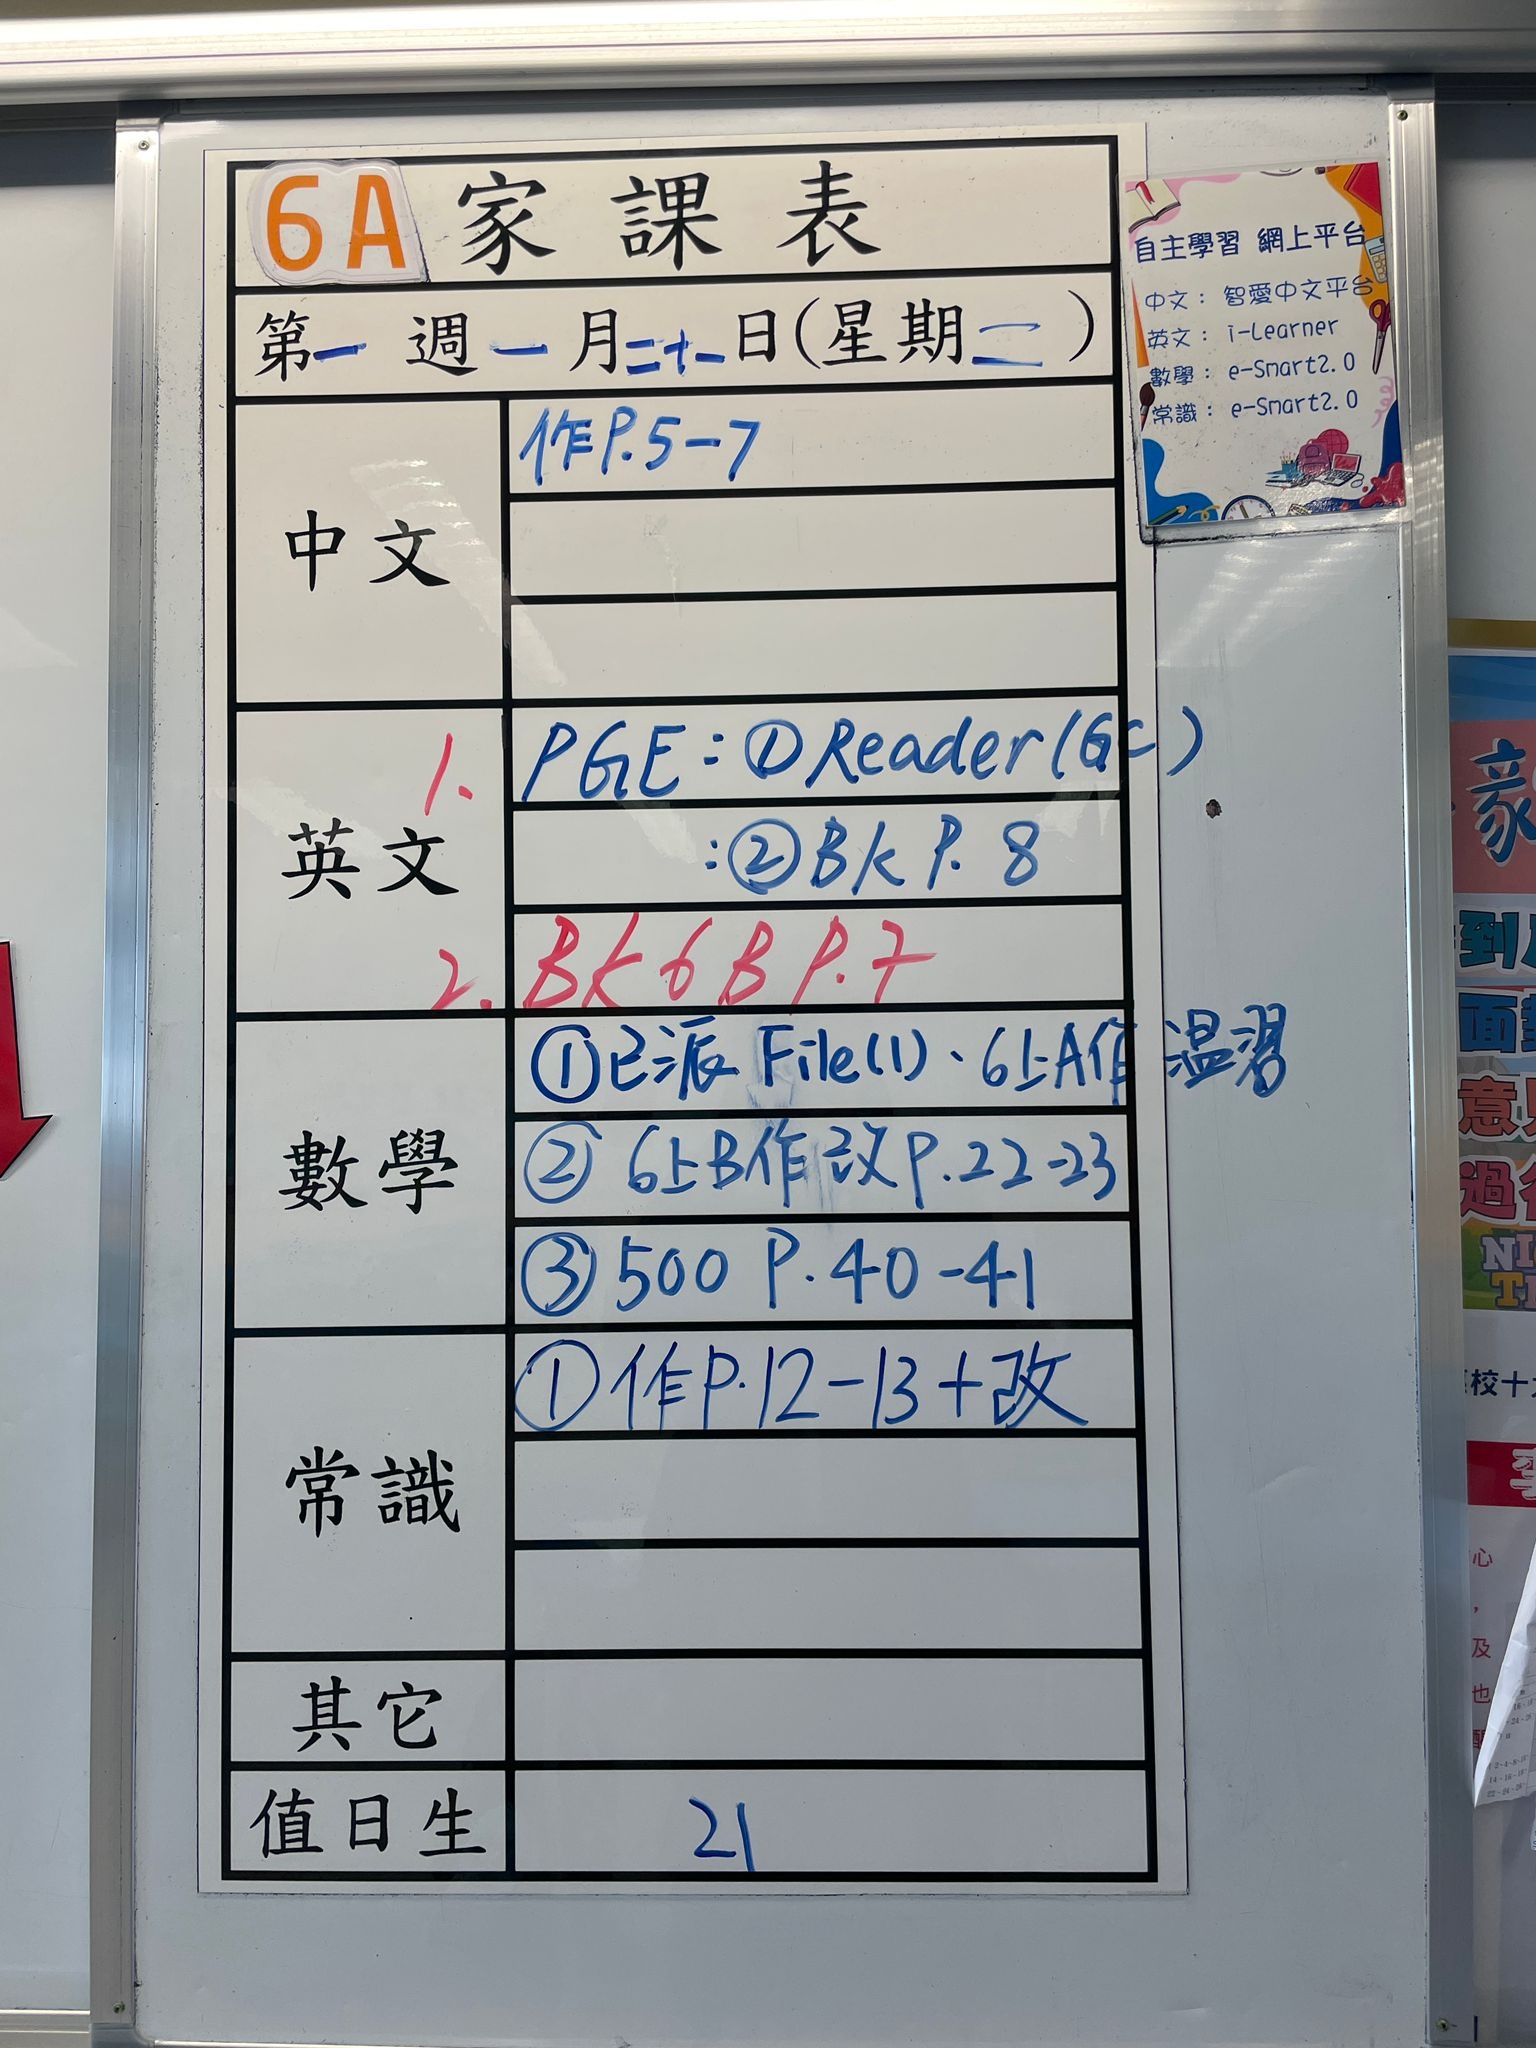 6A 家課表
第一週一月二十一日(星期二)
中文
作P.5-7
英文
1. PGE:①Reader(GC)
:②BK P.8
2. BK 6B P.7
數學
①已派 File(1)、6上A作 温習
②6上B作 改P.22-23
③500 P.40-41
常識
①作P.12-13+改
其它
值日生
21
自主學習 網上平台
中文: 智愛中文平台
英文: i-Learner
數學: e-Smart2.0
常識: e-Smart2.0
家
到
面
意
過
校十
心
,
及
也